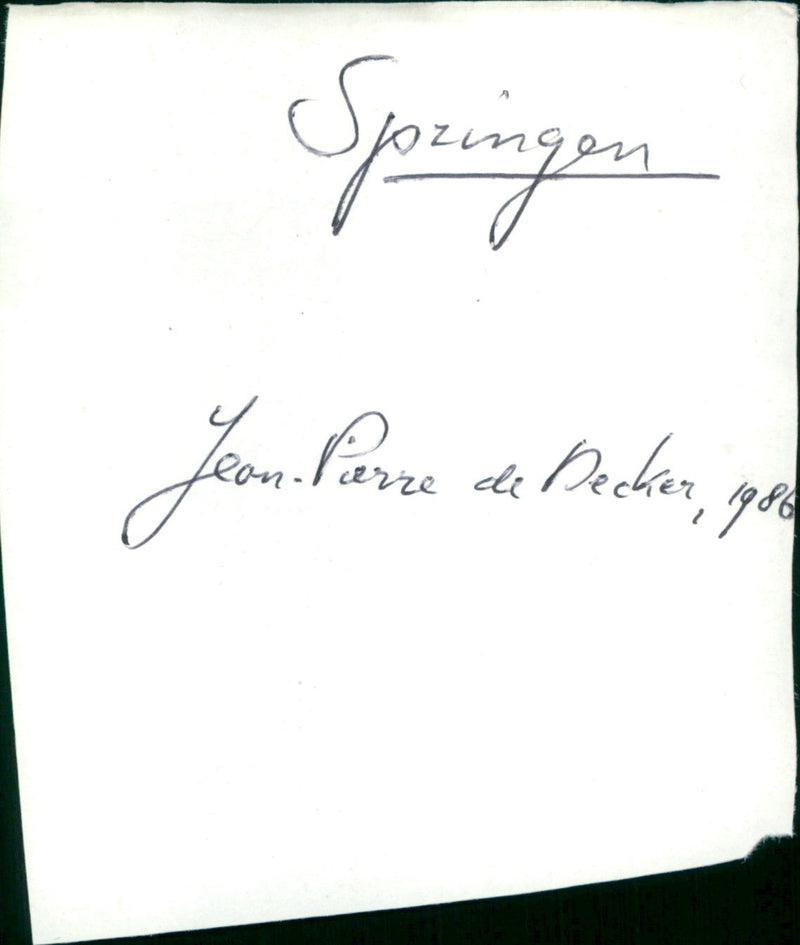 Springen
Jean-Pierre de Decker, 1986